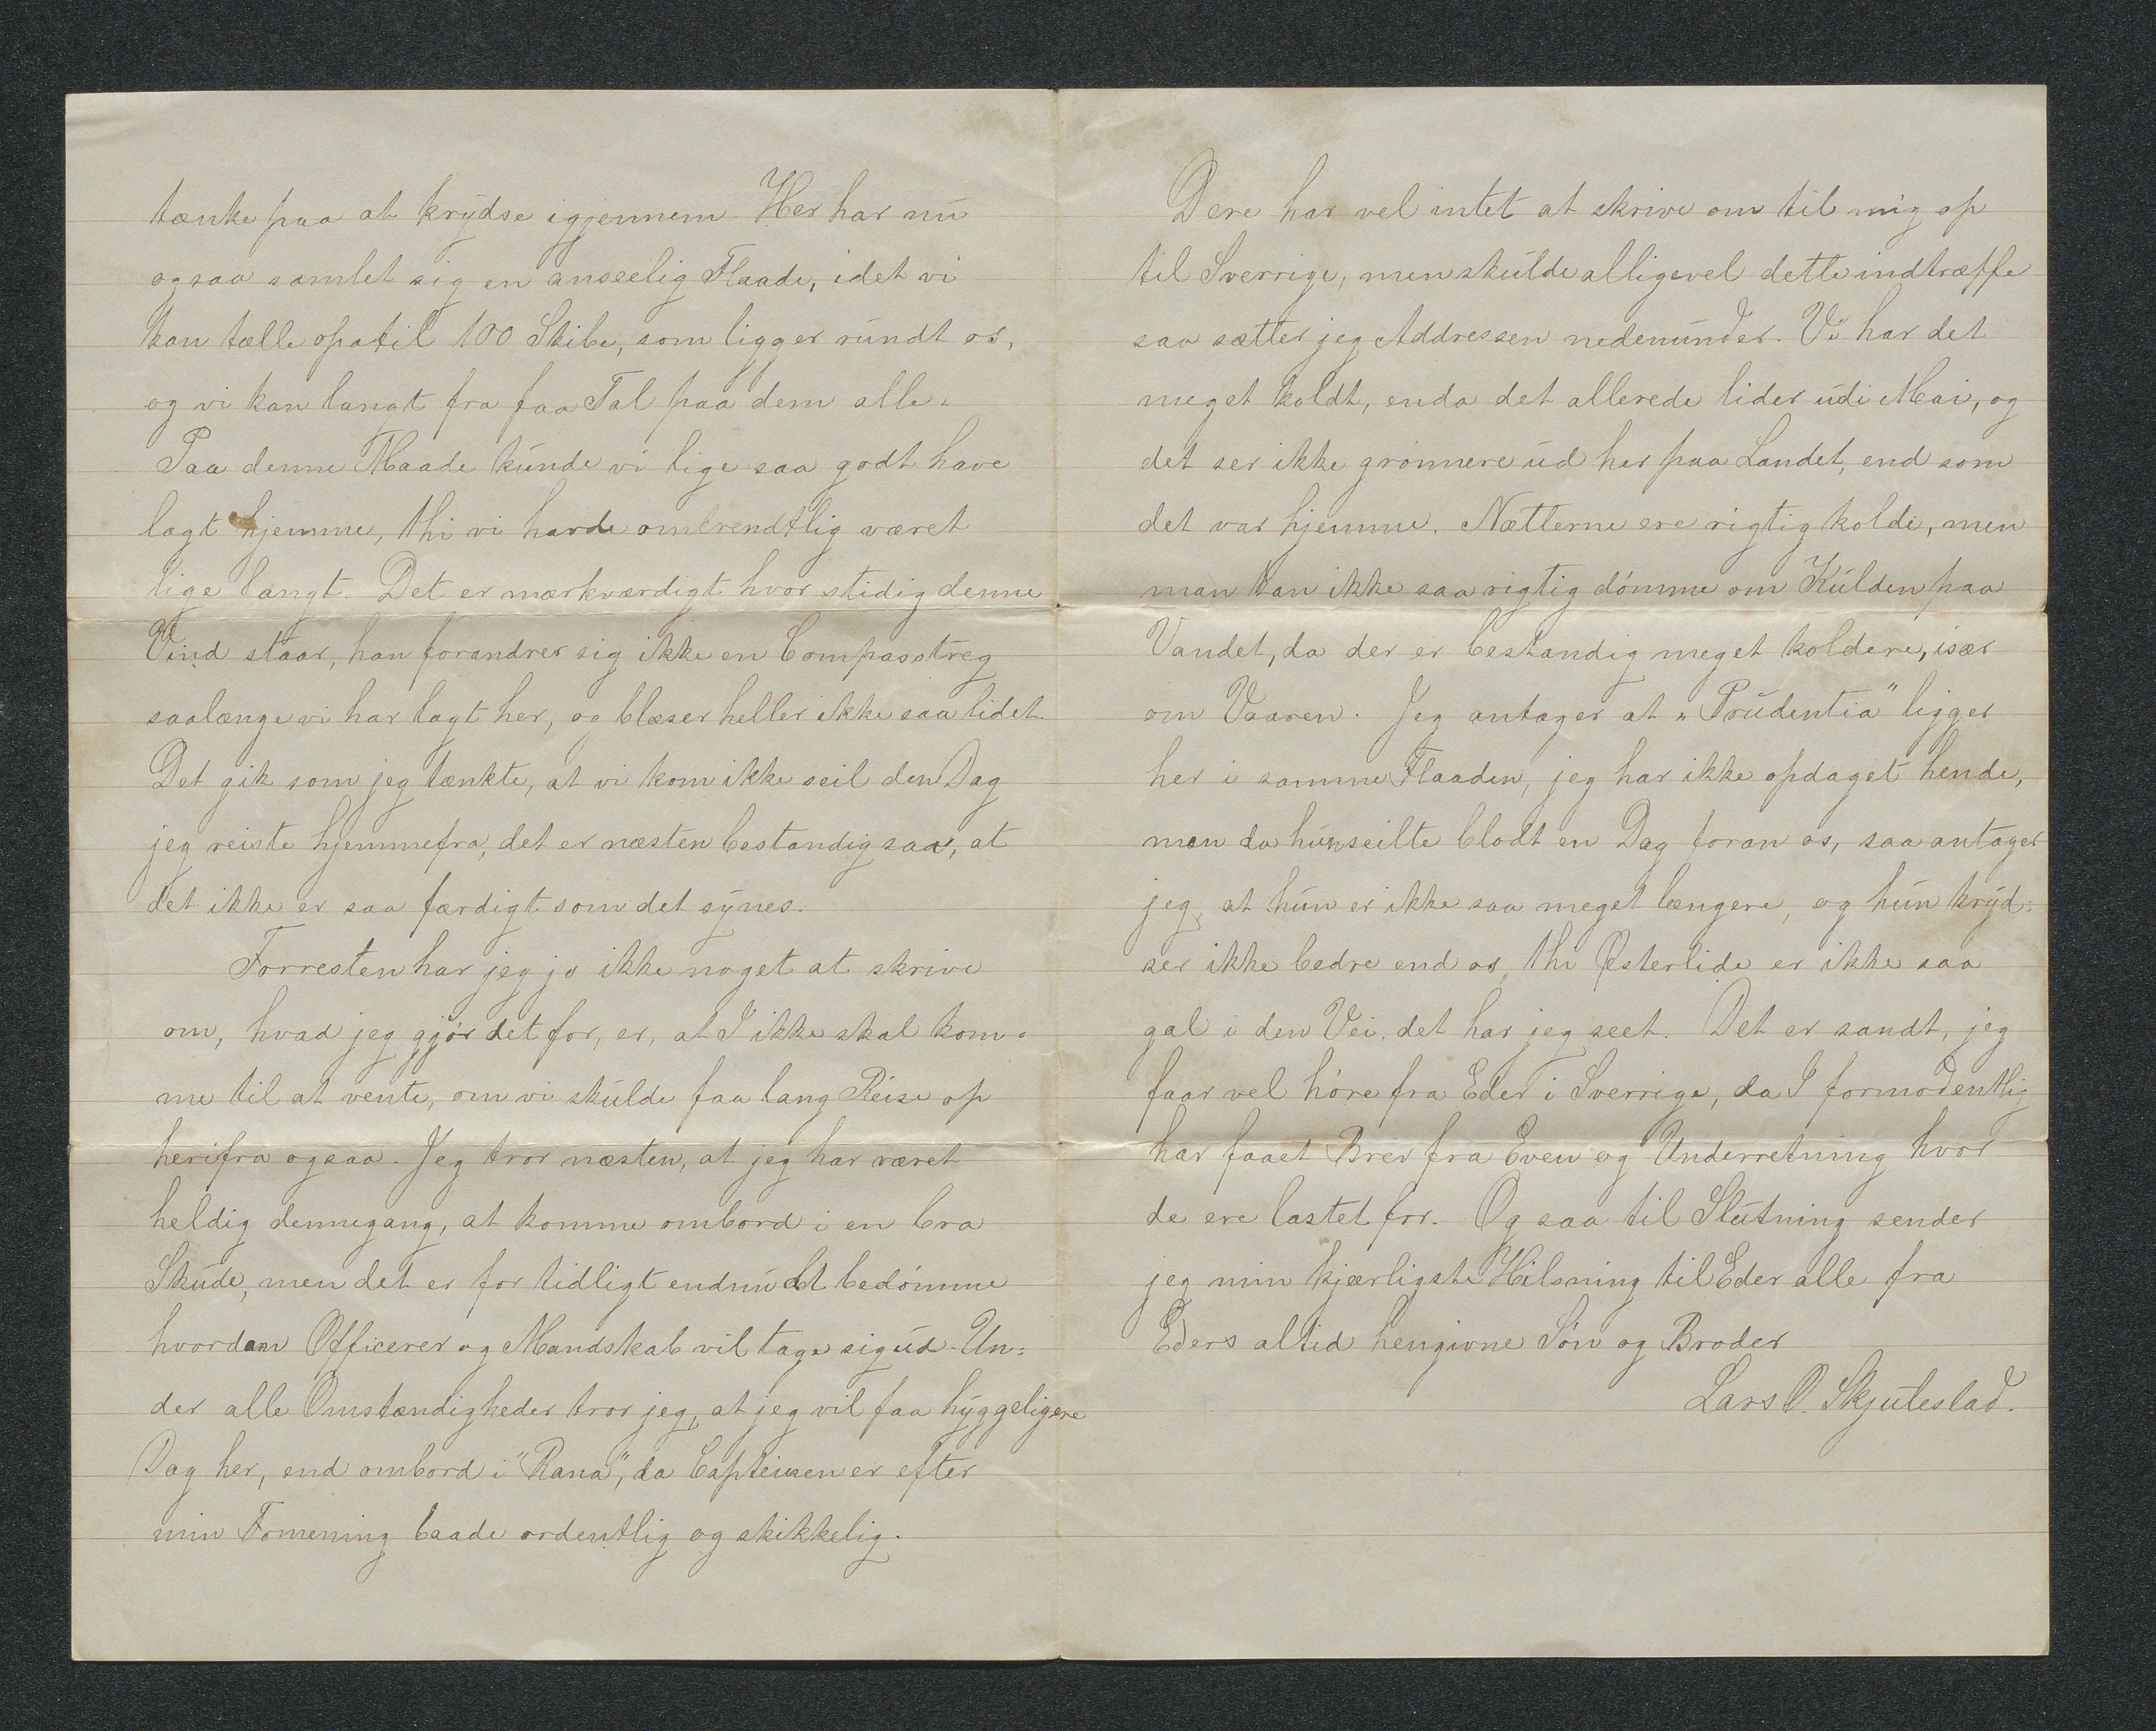 tænke paa at krydse igjennem. Her har nu
ogsaa samlet sig en anseelig Flaade, idet vi
kan tælle opatil 100 Skibe, som ligger rundt os,
og vi kan langt fra faa Tal paa dem alle.
Paa denne Maade kunde vi lige saa godt have
lagt hjemme, thi vi havde omtrendtlig været
lige langt. Det er mærkværdigt hvor stidig denne
Vind staar, han forandrer sig ikke en Compasstreg
saalænge vi har lagt her, og blæser heller ikke saa lidet.
Det gik som jeg tænkte, at vi kom ikke seil den Dag
jeg reiste hjemmefra, det er næsten bestandig saa, at
det ikke er saa færdigt som det synes.
Forresten har jeg jo ikke noget at skrive
om, hvad jeg gjør det for, er, at I ikke skal kom-
me til at vente, om vi skulde faa lang Reise op
herifra ogsaa. Jeg tror næsten, at jeg har været
heldig dennegang, at komme ombord i en bra
Skude, men det er for tidligt endnu at bedømme
hvordan Officerer og Mandskab vil tage sig ud. Un-
der alle Omstændigheder tror jeg, at jeg vil faa hyggeligere
Dag her, end ombord i "Rana", da Capteinen er efter
min Fomening baade ordentlig og skikkelig.
Dere har vel intet at skrive om til mig op
til Sverrige, men skulde alligevel dette indtræffe
saa sætter jeg Addressen nedenunder. Vi har det
meget koldt, enda det allerede lider udi Mai, og
det ser ikke grønnere ud her paa Landet, end som
det var hjemme. Nætterne ere rigtig kolde, men
man kan ikke saa rigtig dømme om Kulden paa
Vandet, da der er bestandig meget koldere, især
om Vaaren. Jeg antager at "Prudentia" ligger
her i samme Flaaden, jeg har ikke opdaget hende,
men da hun seilte blodt en Dag foran os, saa antager
jeg, at hun er ikke saa meget længere, og hun kryd-
ser ikke bedre end os, thi Østerlide er ikke saa
gal i den Vei, det har jeg seet. Det er sandt, jeg
faar vel høre fra Eder i Sverrige, da I formodentlig
har faaet Brev fra Even og Underretning hvor
de ere lastet for. Og saa til Slutning sender
jeg min kjærligste Hilsning til Eder alle fra
Eders altid hengivne Søn og Broder
Lars O. Skjulestad.